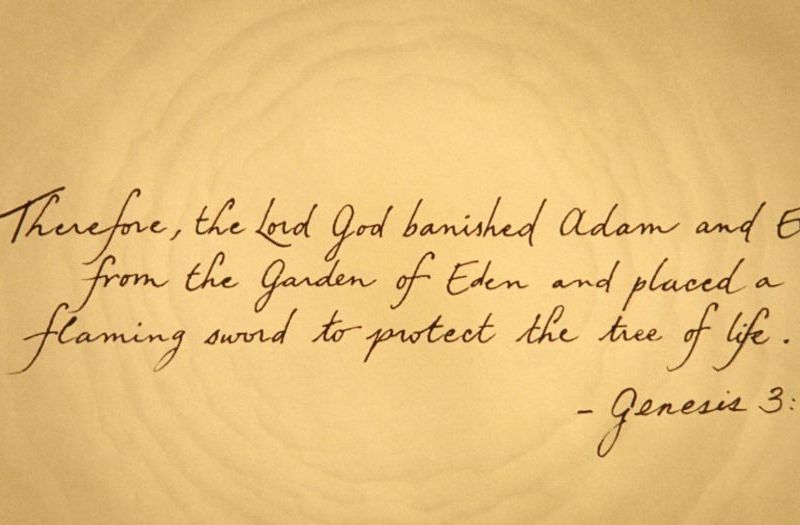 Therefore, the Lord God banished Adam and E
from the Garden of Eden and placed a
flaming sword to protect the tree of life.
- Genesis 3: